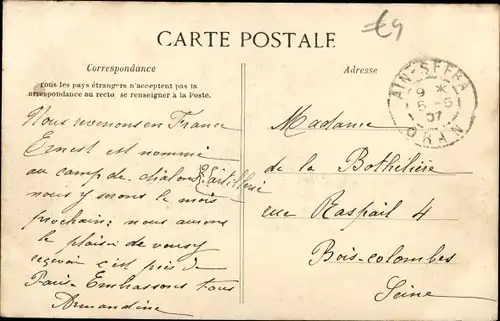 €4
CARTE POSTALE
Correspondance
Tous les pays étrangers n'acceptent pas la
correspondance au recto, se renseigner à la Poste.
Nous revenons en France
Ernest est nommé
au camp de Chalons Et. l'artillerie
nous y serons le mois
prochain; nous aurons
le plaisir de vous y
recevoir c'est près de
Paris. Embrassons tous
Armandine
Adresse
AIN-SEFRA
9 *
5 -5
07
ORAN
Madame
de la Bothilière
rue Raspail 4
Bois-colombes
Seine